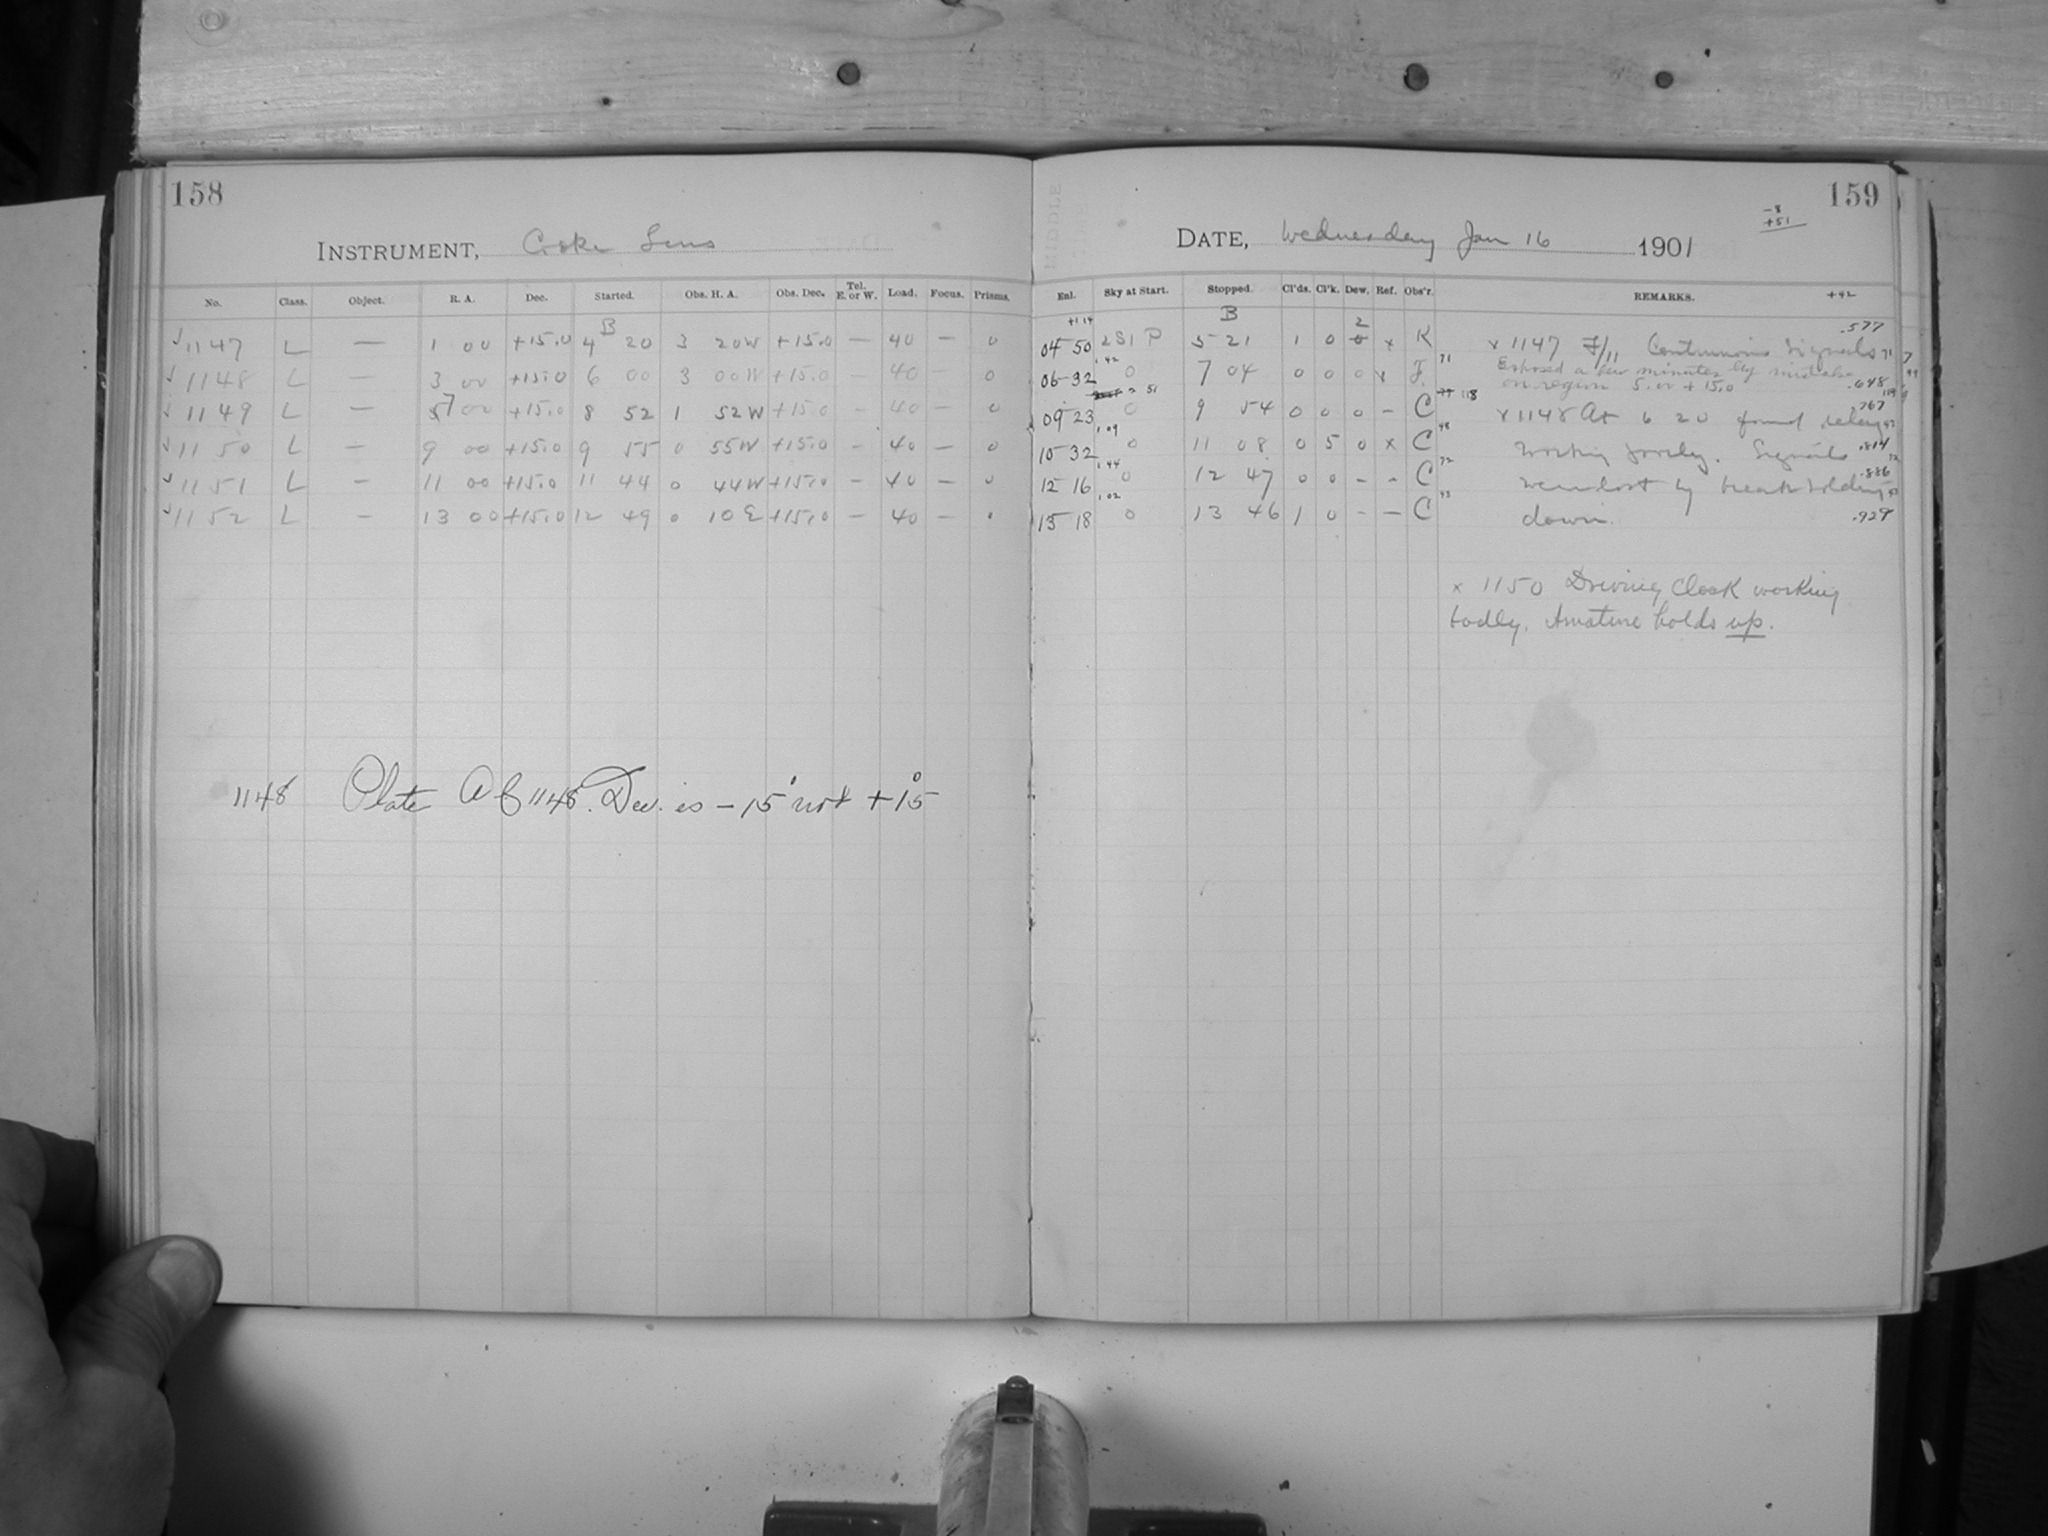 158
INSTRUMENT, Cooke Lens
No. Class. Object. R. A. Dec. Started. Obs. H. A. Obs. Dec. Tel. E. or W. Load. Focus. Prisms.
B
√1147 L — 1 00 +15.0 4 20 3 20W +15.0 — 40 — 0
√1148 L — 3 00 +15.0 6 00 3 00W +15.0 — 40 — 0
√1149 L — 7 00 +15.0 8 52 1 52W +15.0 — 40 — 0
√1150 L — 9 00 +15.0 9 55 0 55W +15.0 — 40 — 0
√1151 L — 11 00 +15.0 11 44 0 44W +15.0 — 40 — 0
√1152 L — 13 00 +15.0 12 49 0 10E +15.0 — 40 — 0
1148 Plate A of 1148. Dec. is −15° not +15°
159
−8
+51
DATE, Wednesday Jan 16 1901
Enl. Sky at Start. Stopped. Cl'ds. Cl'k. Dew. Ref. Obs'r. REMARKS. +42
+1 14 B 2 .577
04 50 2S1 P 5 21 1 0 0 x K x 1147 F/11 Continuous signals 71
1.42 Exposed a few minutes by mistake
06 32 0 7 04 0 0 0 x F. 71 on region 5.00 +15.0 .648
2 51 118 119
09 23 0 9 54 0 0 0 – C x 1148 At 6 20 found relay .767
1.09
10 32 0 11 08 0 5 0 x C 48 working poorly. Signals .814
1.44 72
12 16 0 12 47 0 0 – – C 72 were lost by break holding .886
1.02 43
13 18 0 13 46 1 0 – – C 43 down. .929
x 1150 Driving Clock working
badly. Amature holds up.